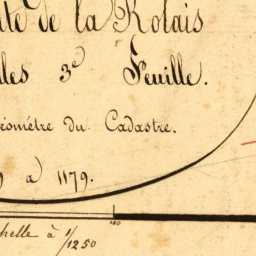 té de la Rolais
lles 3e Feuille.
éomètre du Cadastre.
9 a 1179.
chelle à 1/1250